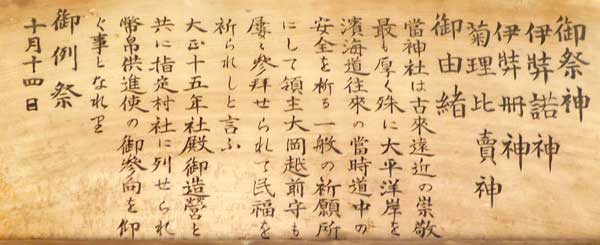 御祭神
伊弉諾神
伊弉冊神
菊理比賣神
御由緒
當神社は古來遠近の崇敬
最も厚く殊に太平洋岸を
濱海道往來の當時道中の
安全を祈る一般の祈願所
にして領主大岡越前守も
屡々參拜せられて民福を
祈られしと言ふ
大正十五年社殿御造營と
共に指定村社に列せられ
幣帛供進使の御參向を仰
ぐ事となれり
御例祭
十月十四日